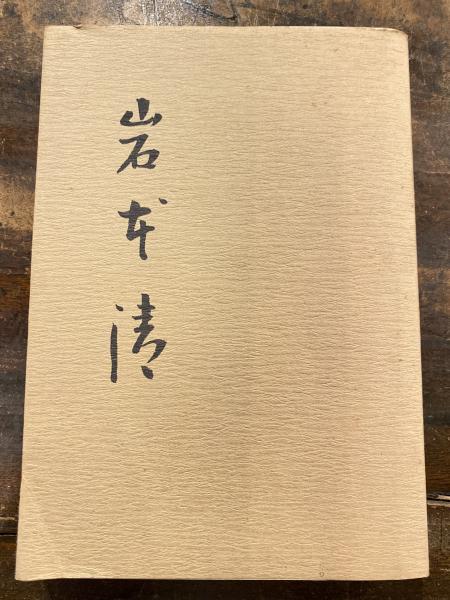 岩本清